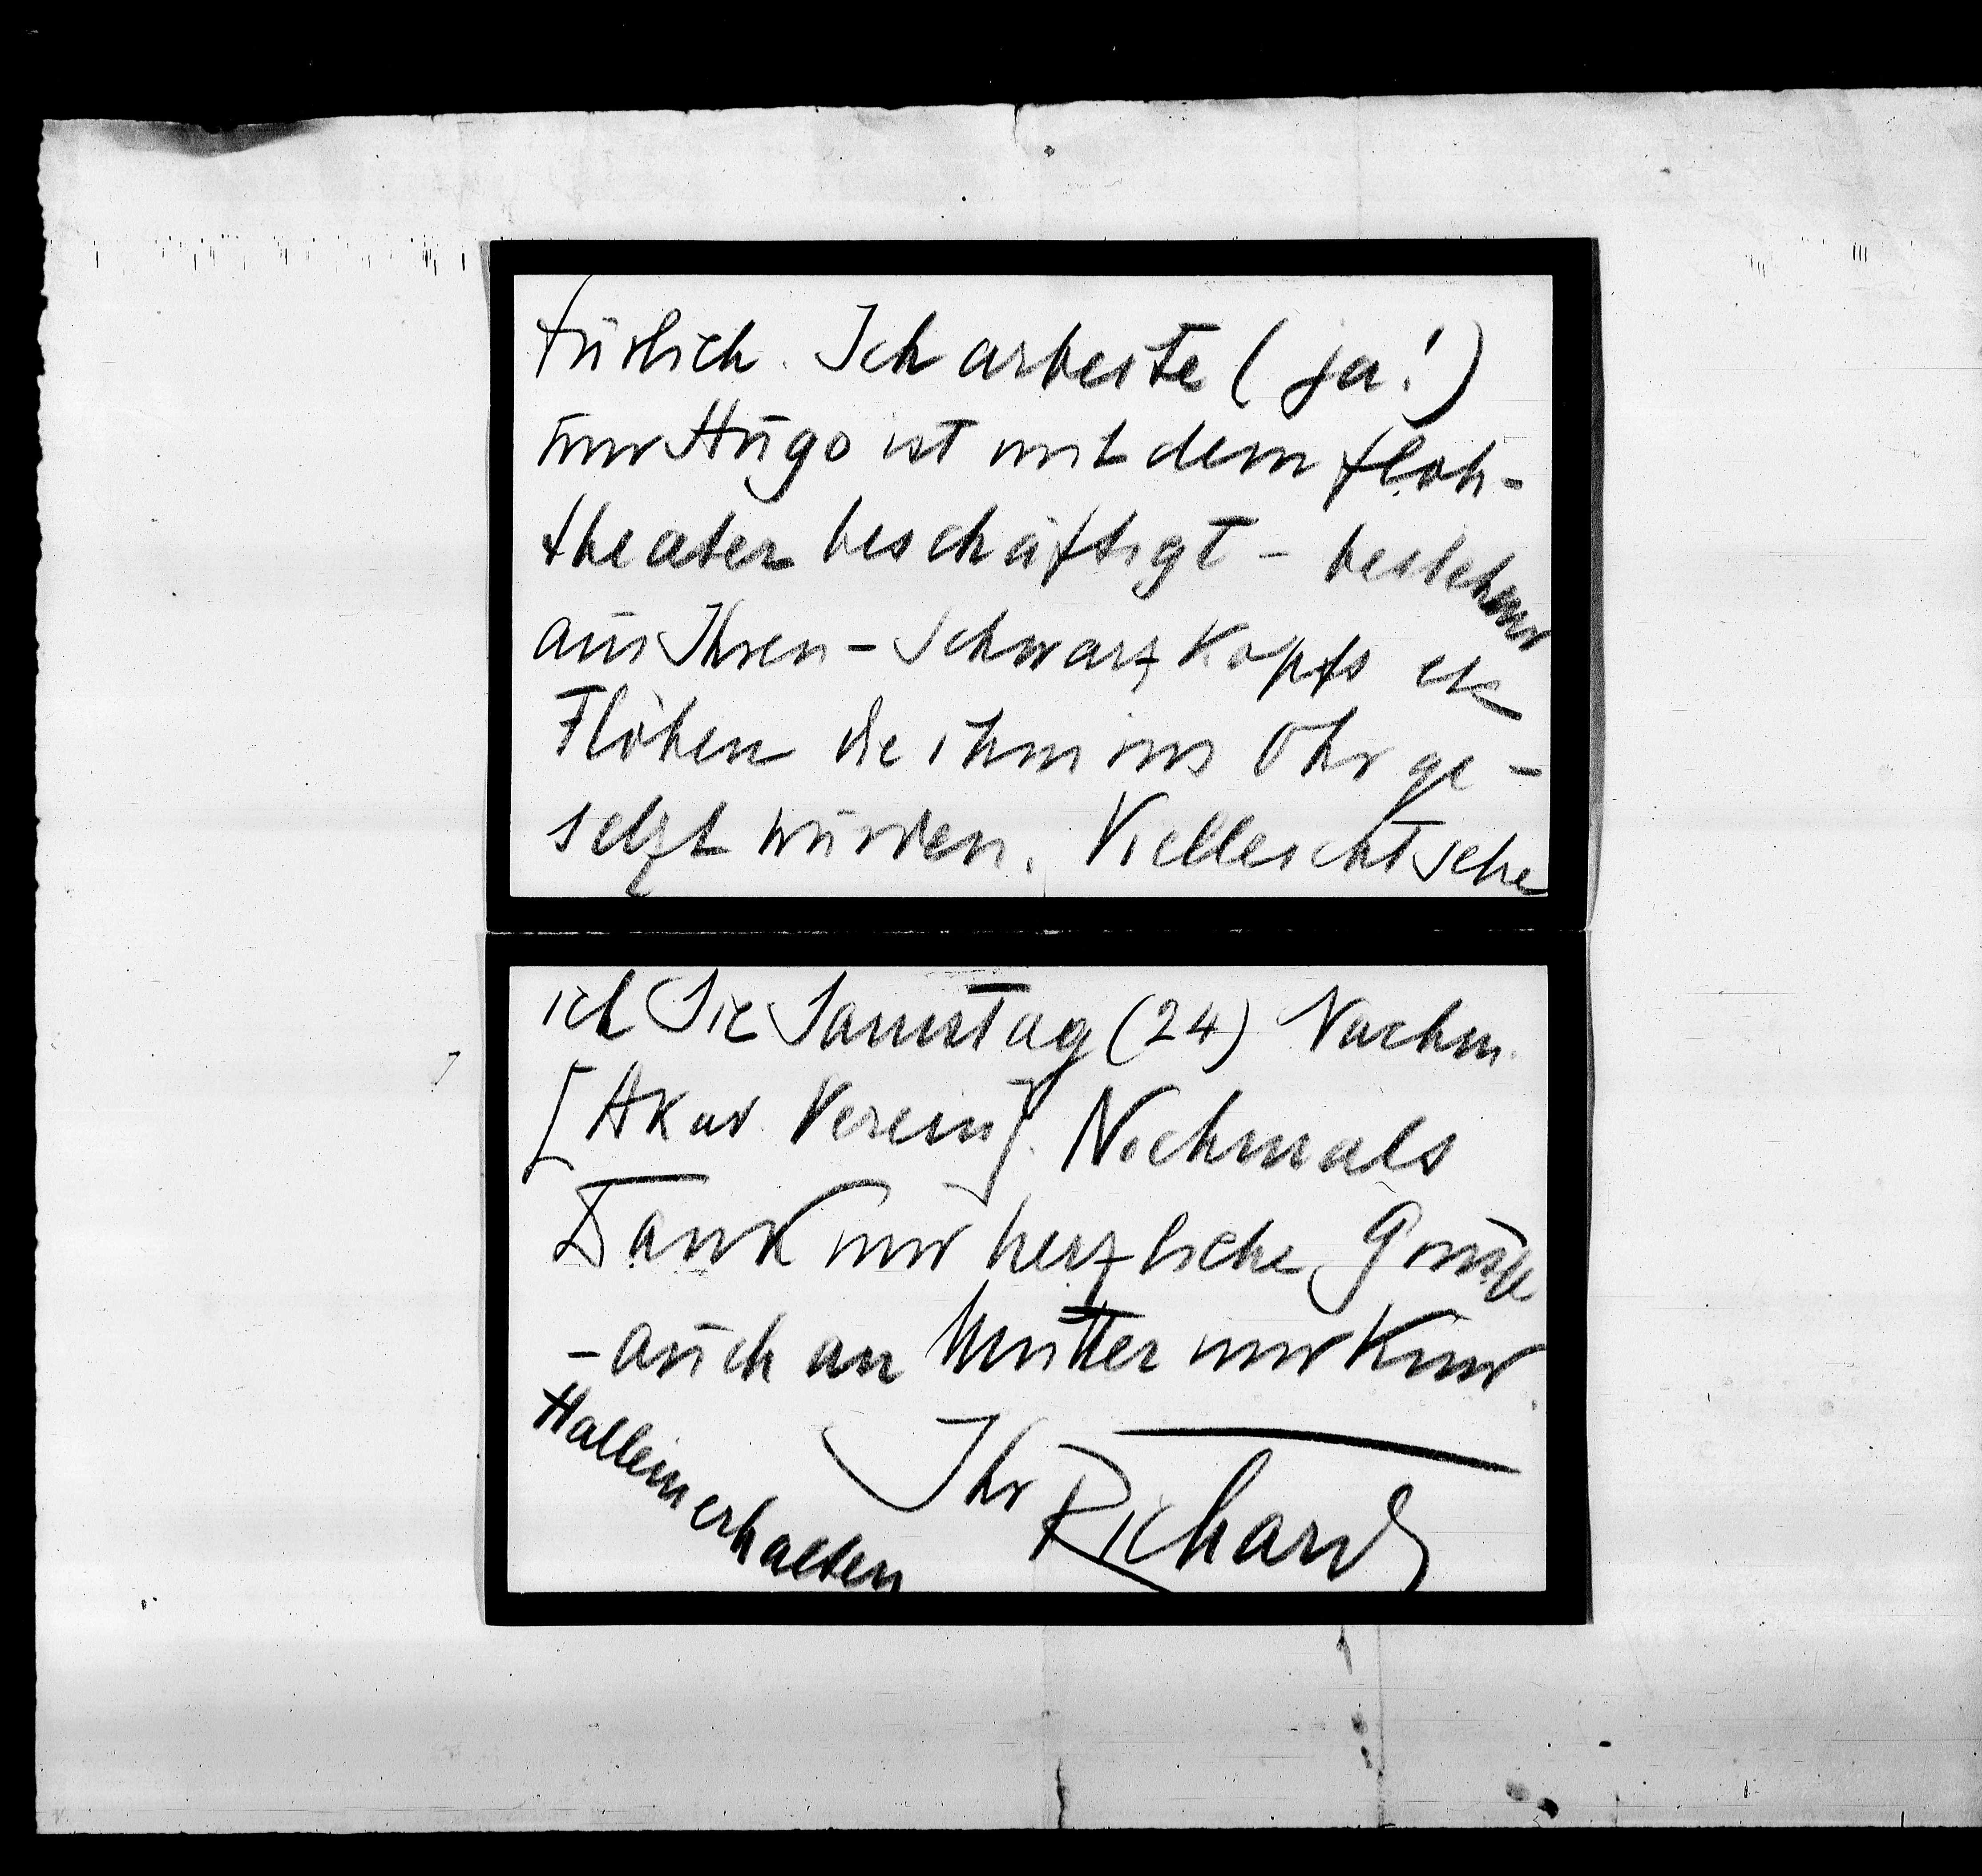 türlich. Ich arbeite (ja!)
und Hugo ist mit dem Floh-
theater beschäftigt – bestehend
aus Ihren – Schwarzkopfs etc
Flöhen die ihm ins Ohr ge-
setzt wurden. Vielleicht sehe
ich Sie Samstag (24) Nachm.
[Akad. Verein]. Nochmals
Dank und herzliche Grüsse
– auch an Mutter und Kind.
Ihr Richard
Hallein erhalten